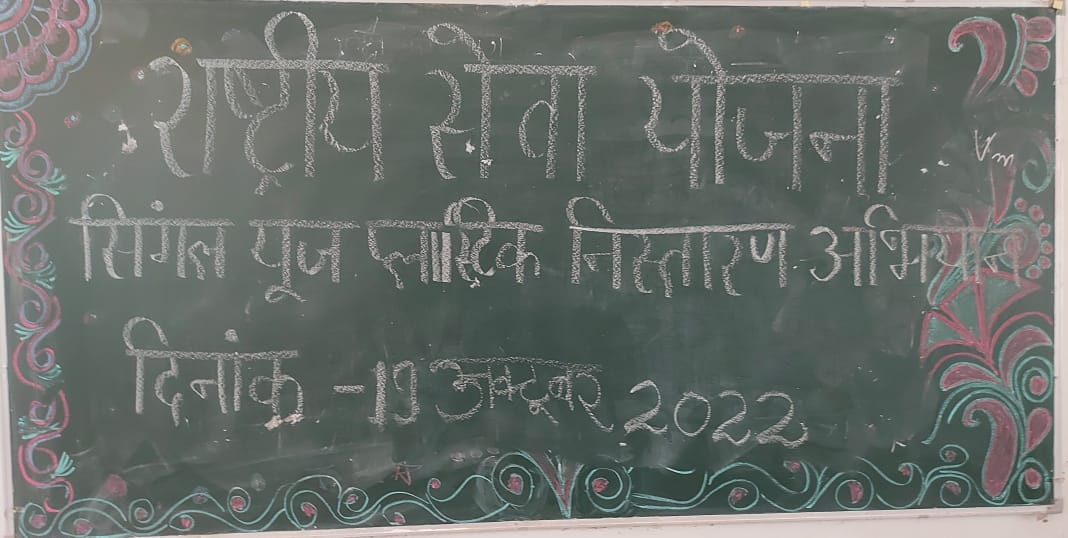 राष्ट्रीय सेवा योजना
सिंगल यूज प्लास्टिक निस्तारण अभियान
दिनांक - 19 अक्टूबर 2022